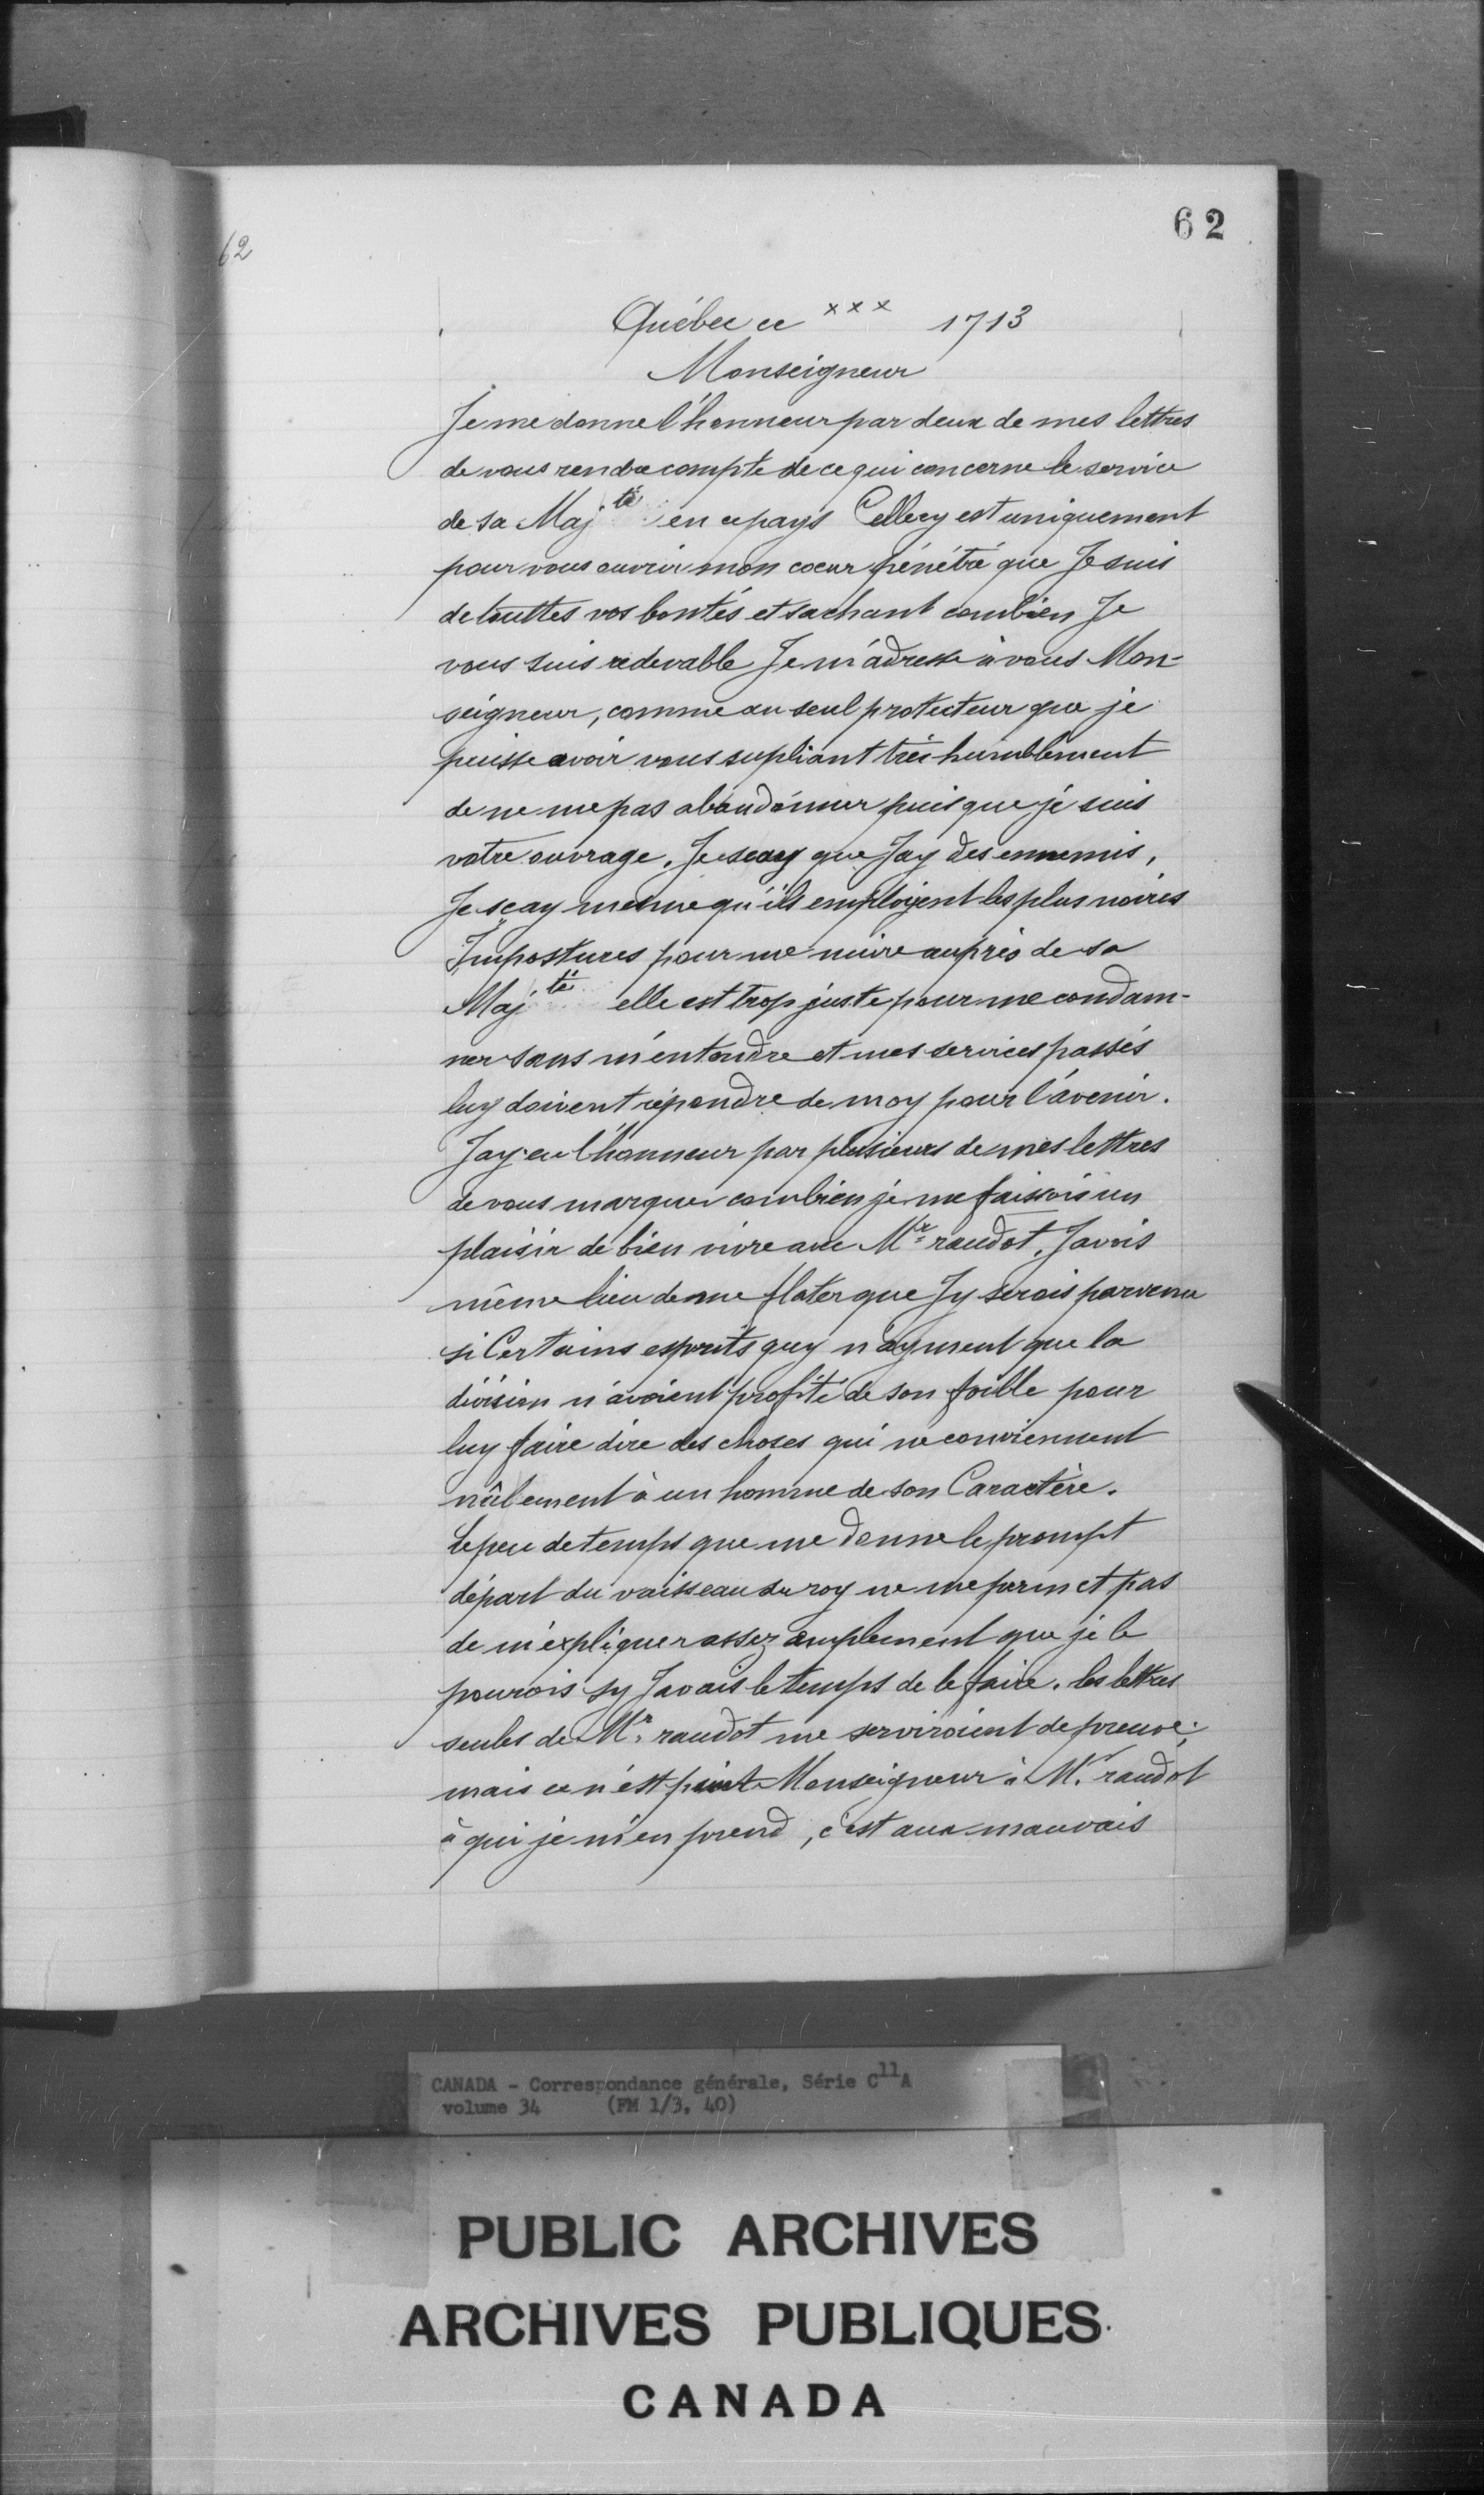 62
62
Québec ce xxx 1713
Monseigneur
Je me donne l'honneur par deux de mes lettres
de vous rendre compte de ce qui concerne le service
de sa Maj té en ce pays Cellecy est uniquement
pour vous ouvrir mon coeur pénétré que Je suis
de touttes vos bontés et sachant combien Je
vous suis redevable Je m'adresse à vous Mon-
seigneur, comme au seul protecteur que je
puisse avoir vous supliant très humblement
de ne me pas abandonner puis que je suis
votre ouvrage. Je scay que Jay des ennemis,
Je sçay mesme qu'ils employent les plus noires
Impostures pour me nuire auprès de sa
Maj té elle est trop juste pour me condam-
ner sans m'entendre et mes services passés
luy doivent répondre de moy pour l'avenir.
Jay eu l'honneur par plusieurs de mes lettres
de vous marquer combien je me faissois un
plaisir de bien vivre avec Mr raudot, Javois
même lieu de me flater que Jy serois parvenu
si Certains esprits quy n'ayment que la
division n'avoient profité de son foible pour
luy faire dire des choses qui ne conviennent
nûlement à un homme de son Caractère.
Le peu de temps que me donne le prompt
départ du vaisseau du roy ne me permet pas
de m'expliquer assez amplement que je le
pourois sy Javais le temps de le faire. les lettres
seules de Mr raudot me serviroient de preuve;
mais ce n'est point Monseigneur à Mr raudot
à qui je m'en prend, c'est aux mauvais
CANADA - Correspondance générale, Série C11A
volume 34 (FM 1/3, 40)
PUBLIC ARCHIVES
ARCHIVES PUBLIQUES
CANADA